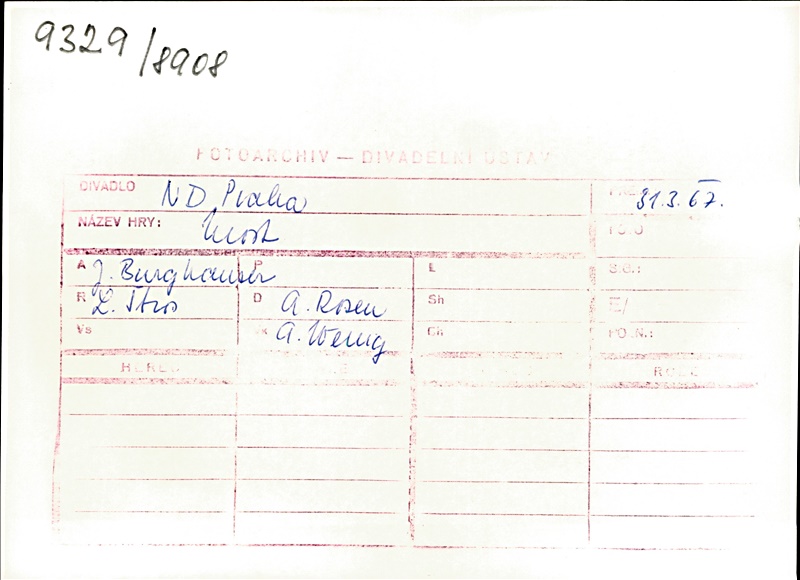 9329/8908
FOTOARCHIV — DIVADELNÍ ÚSTAV
DIVADLO ND Praha 31.3.67.
NÁZEV HRY: Most
A J. Burghauser P L S.O.:
R L. Štros D A. Rosen Sh
Vs A. Wenig Ch FO.N.:
HEREC ROLE